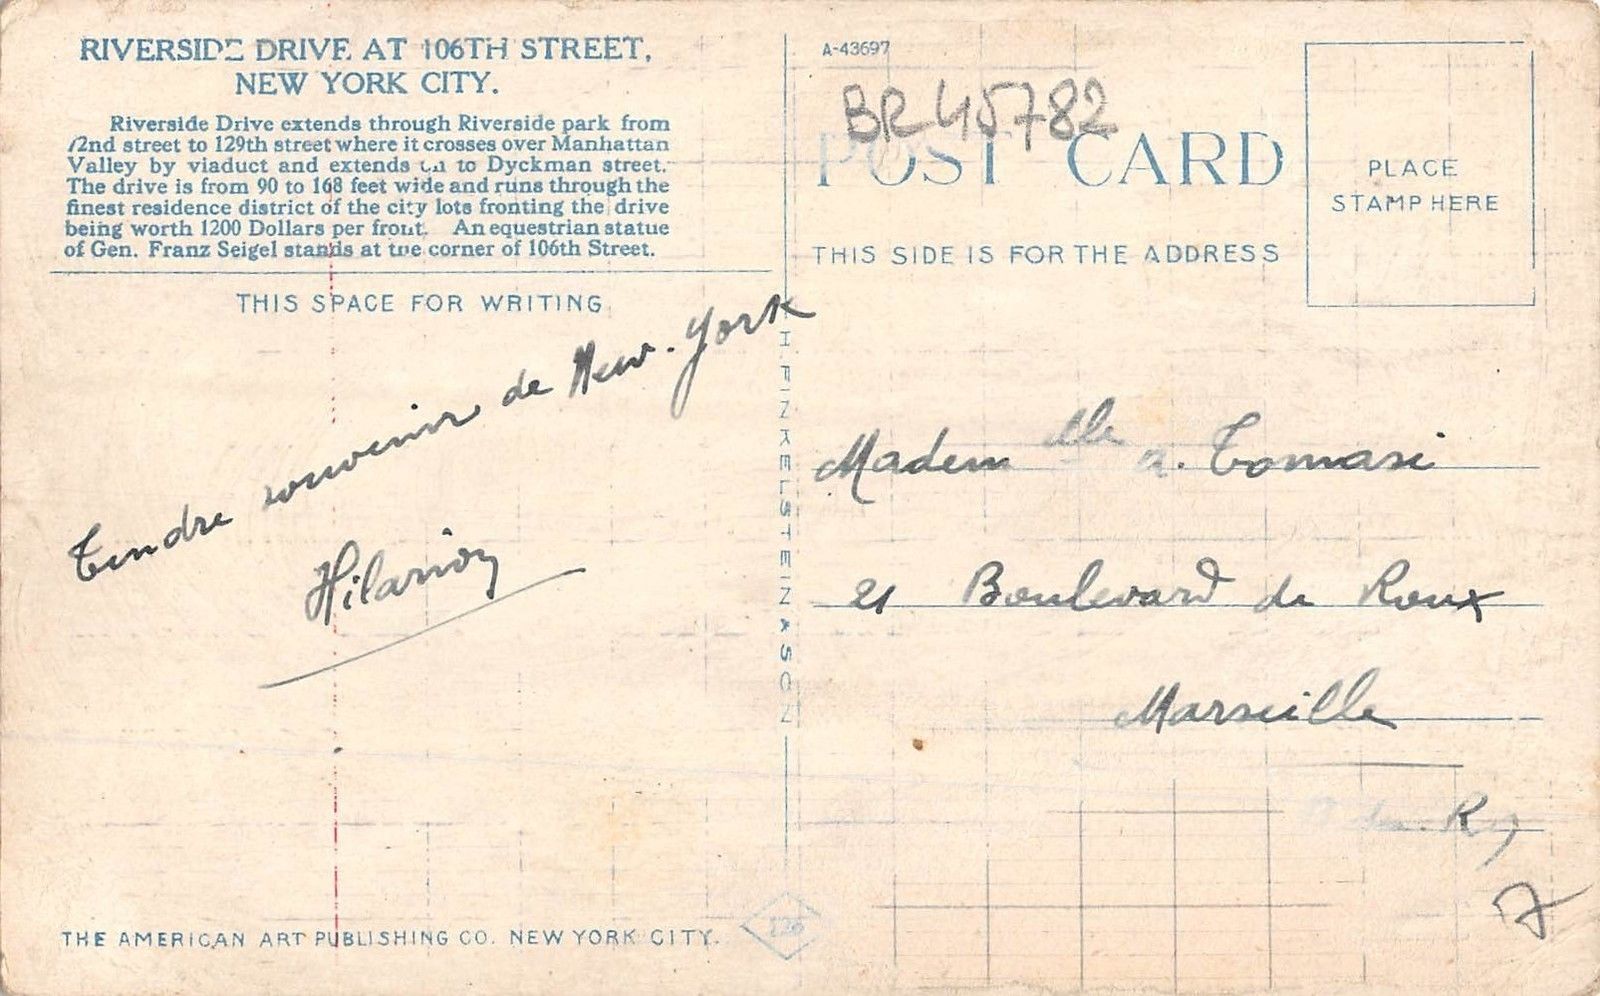 RIVERSIDE DRIVE AT 106TH STREET,
NEW YORK CITY.
Riverside Drive extends through Riverside park from
72nd street to 129th street where it crosses over Manhattan
Valley by viaduct and extends on to Dyckman street.
The drive is from 90 to 168 feet wide and runs through the
finest residence district of the city lots fronting the drive
being worth 1200 Dollars per front. An equestrian statue
of Gen. Franz Seigel stands at the corner of 106th Street.
THIS SPACE FOR WRITING
Tendre souvenir de New-York
Hilarion
THE AMERICAN ART PUBLISHING CO. NEW YORK CITY.
H. FINKELSTEIN & SON
126
A-43697
BR45782
POST CARD
THIS SIDE IS FOR THE ADDRESS
PLACE
STAMP HERE
Mademelle a. Tomasi
21 Boulevard de Roux
Marseille
7